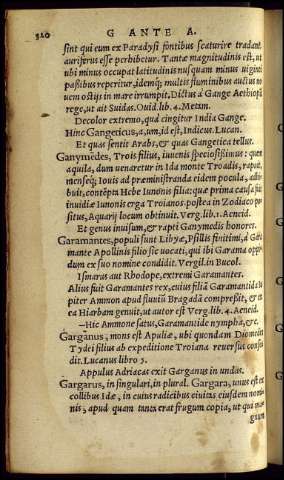 320 G ANTE A.
sint qui eum ex Paradysi fontibus scaturire tradant
auriferus esse perhibetur. Tantæ magnitudinis est, ut
ubi minus occupat latitudinis nusquam minus uiginti
passibus reperitur, idemq; multis fluminibus auctus no
uem ostijs in mare irrumpit, Dictus à Gange Aethiopũ
rege, ut ait Suidas. Ouid. lib. 4. Metam.
Decolor extremo, quà cingitur India Gange.
Hinc Gangeticus, a, um, id est, Indicus. Lucan.
Et quas sentit Arabs, & quas Gangetica tellus.
Ganymedes, Trois filius, iuuenis speciosissimus: quem
aquila, dum uenaretur in Ida monte Troadis, rapuit,
menseq; Iouis ad præministranda eidem pocula, adhi
buit, contẽpta Hebe Iunonis filia: quæ prima causa fuit
inuidiæ Iunonis erga Troianos. postea in Zodiaco po
situs, Aquarij locum obtinuit. Verg. lib. 1. Aeneid.
Et genus inuisum, & rapti Ganymedis honores.
Garamantes, populi sunt Libyæ, Psillis finitimi, à Gara
mante Apollinis filio sic uocati, qui ibi Garama oppi-
dum ex suo nomine condidit. Vergil. in Bucol.
Ismarus aut Rhodope, extremi Garamantes.
Alius fuit Garamantes rex, cuius filiã Garamantida Iu
piter Ammon apud fluuiũ Bragadã compressit, & ex
ea Hiarbam genuit, ut autor est Verg. lib. 4. Aeneid.
—Hic Ammone satus, Garamantide nympha, &c.
Garganus, mons est Apuliæ, ubi quondam Diomedes
Tydei filius ab expeditione Troiana reuersus conse
dit. Lucanus libro 5.
Appulus Adriacas exit Garganus in undas.
Gargarus, in singulari, in plural. Gargara, unus est ex
collibus Idæ, in cuius radicibus ciuitas eiusdem nomi
nis, apud quam tanta erat frugum copia, ut qui